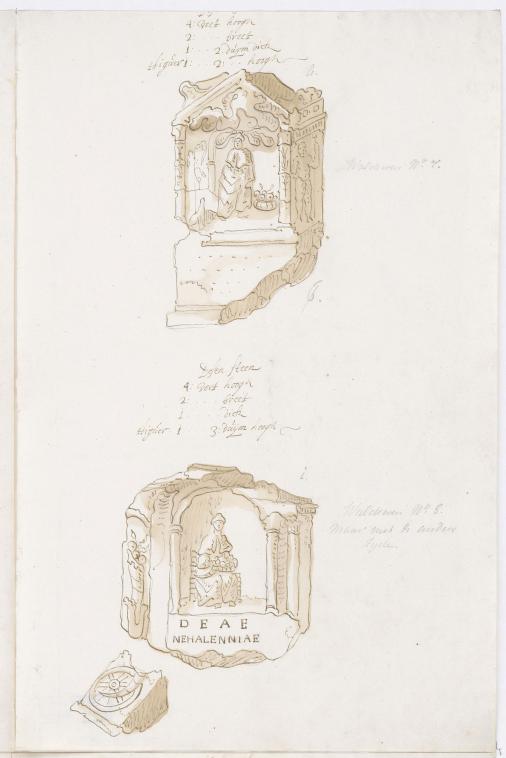 4: voet hoogh
2: . . . breet
1 . . . 2: duijm dick
thiguer 1: . . 2: . . hoogh
h.
Walcheren No. 7.
Desen steen
4: voet hoogh
2: . . . breet
1 . . . dick
thiguer 1 . . . 3: duijm hoogh
i.
Walcheren No. 8.
maar met de andere
zyde.
DEAE
NEHALENNIAE